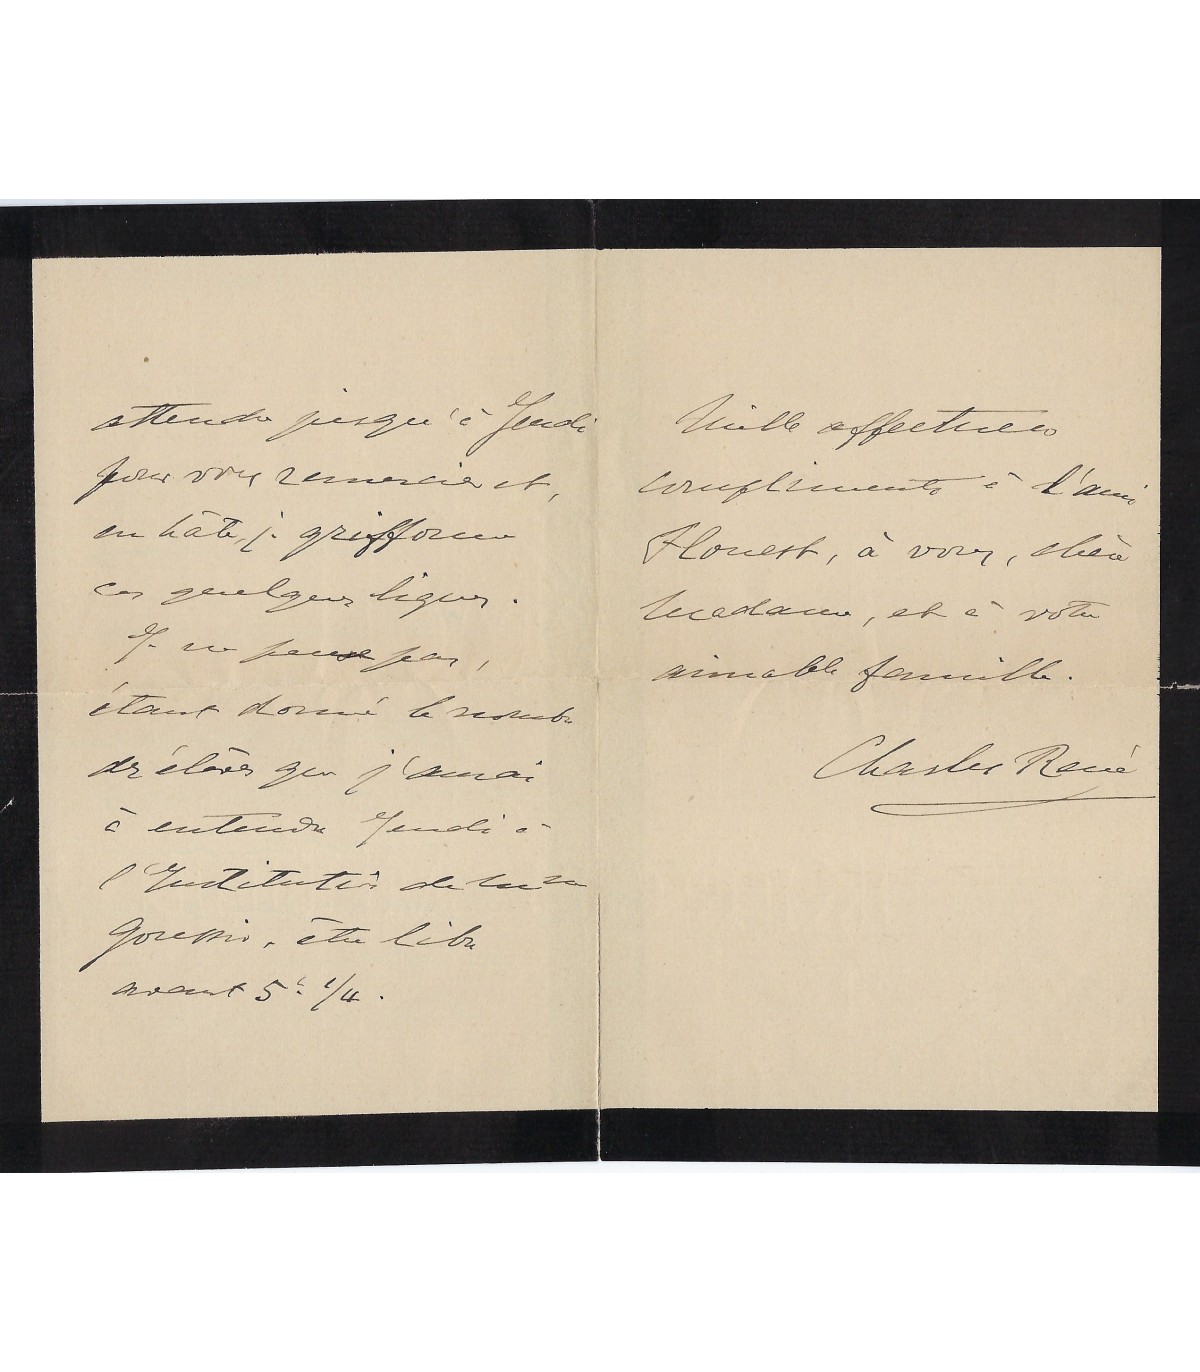 attendre jusqu'à Jeudi
pour vous remercier et,
en hâte, je griffonne
ces quelques lignes.
Je ne pense pas,
étant donné le nombre
d'élèves que j'aurai
à entendre Jeudi à
l'Institution de
être libre
avant 5h 1/4.
Mille affectueux
compliments à l'ami
Flouest, à vous, chère
Madame, et à votre
aimable famille.
Charles René